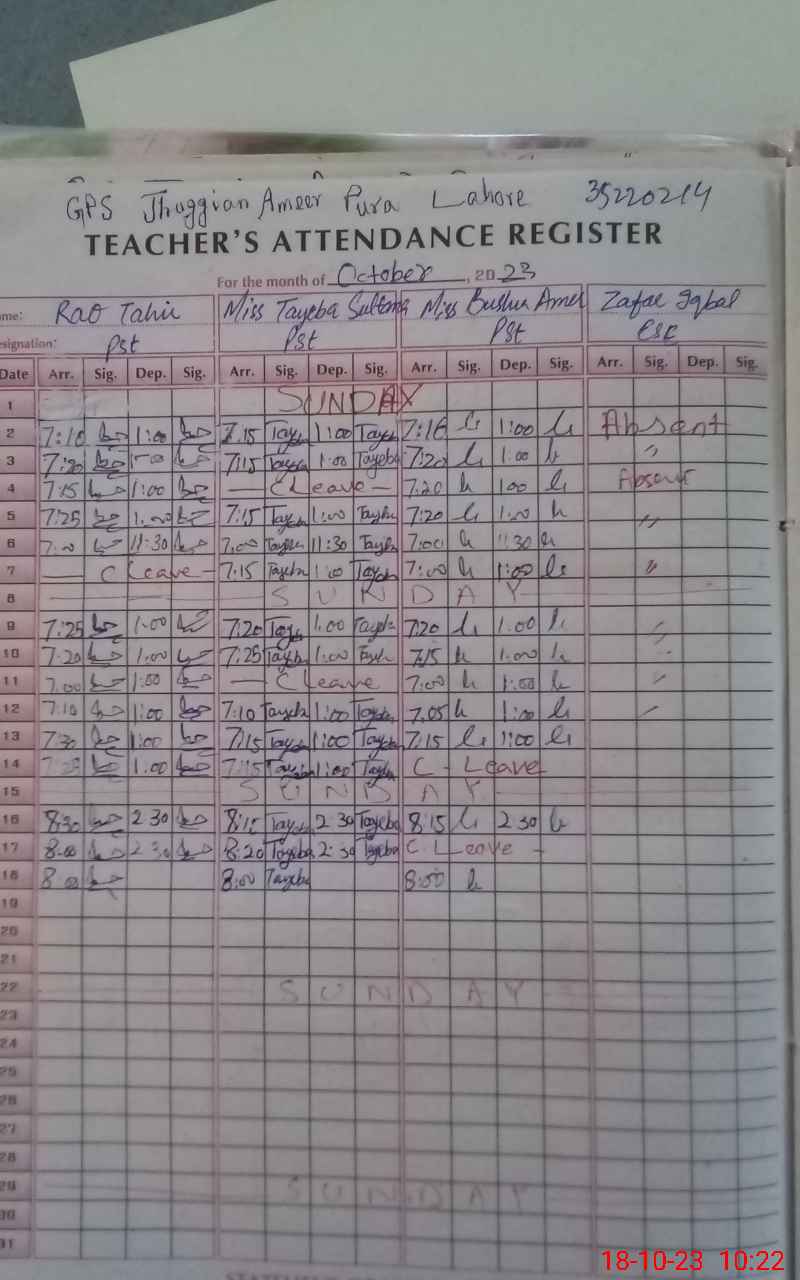 GPS Jhuggian Ameer Pura Lahore 35220214
TEACHER'S ATTENDANCE REGISTER
For the month of October, 2023
me: Rao Tahir Miss Tayeba Sultana Miss Bushra Amer Zafar Iqbal
esignation: Pst Pst Pst ESE
Date Arr. Sig. Dep. Sig. Arr. Sig. Dep. Sig. Arr. Sig. Dep. Sig. Arr. Sig. Dep. Sig.
1 SUNDAY
2 7:10 1:00 7.15 Tayeba 1:00 Tayeba 7:16 1:00 Absent
3 7:20 1:00 7:15 Tayeba 1:00 Tayeba 7:20 1.00 "
4 7:15 1:00 — C Leave — 7:20 1:00 Absent
5 7:25 1.00 7:15 Tayeba 1:00 Tayeba 7:20 1.00 "
6 7:00 11:30 7:00 Tayeba 11:30 Tayeba 7:00 11:30
7 — C Leave — 7:15 Tayeba 1:00 Tayeba 7:00 1:00 "
8 SUNDAY
9 7:25 1:00 7:20 Tayeba 1.00 Tayeba 7:20 1.00 "
10 7:20 1.00 7:25 Tayeba 1:00 Tayeba 7:15 1.00 "
11 7.00 1:00 — C Leave 7:00 1:00 "
12 7:10 1:00 7:10 Tayeba 1:00 Tayeba 7.05 1:00
13 7:30 1:00 7:15 Tayeba 1:00 Tayeba 7:15 1:00
14 7:25 1.00 7:15 Tayeba 1:00 Tayeba C - Leave
15 SUNDAY
16 8:30 2 30 8:15 Tayeba 2 30 Tayeba 8:15 2 30
17 8:00 2 30 8:20 Tayeba 2:30 Tayeba C Leave -
18 8:00 8:00 Tayeba 8:00
19
20
21
22 SUNDAY
23
24
25
26
27
28
29 SUNDAY
30
31
18-10-23 10:22